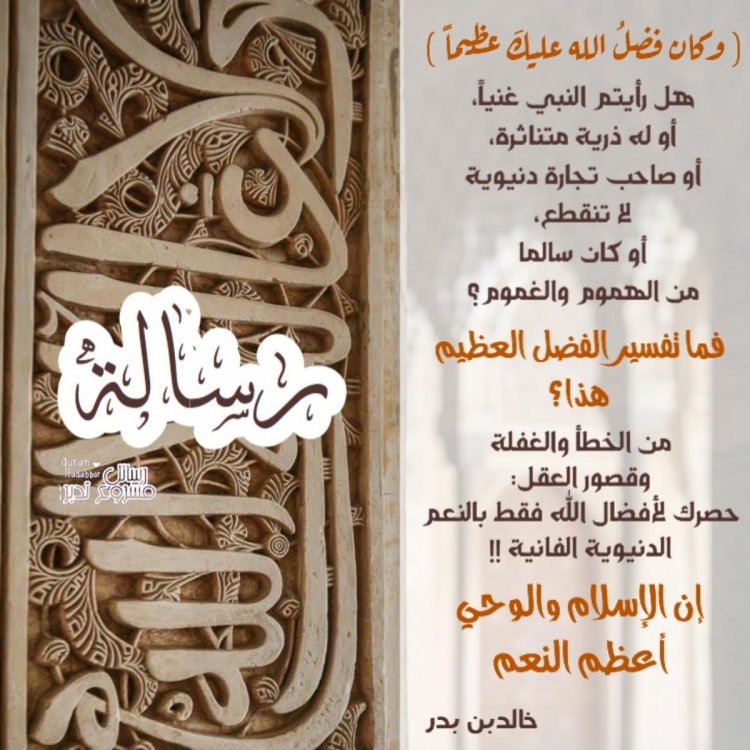 ( وكان فضلُ الله عليكَ عظيماً )
هل رأيتم النبي غنياً،
أو له ذرية متناثرة،
أو صاحب تجارة دنيوية
لا تنقطع،
أو كان سالما
من الهموم والغموم؟
فما تفسير الفضل العظيم
هذا؟
من الخطأ والغفلة
وقصور العقل:
حصرك لأفضال الله فقط بالنعم
الدنيوية الفانية !!
إن الإسلام والوحي
أعظم النعم
خالدبن بدر
رسالة
quran
tadabbor
رسائل
مشروع تدبر
ولا غالب إلا الله